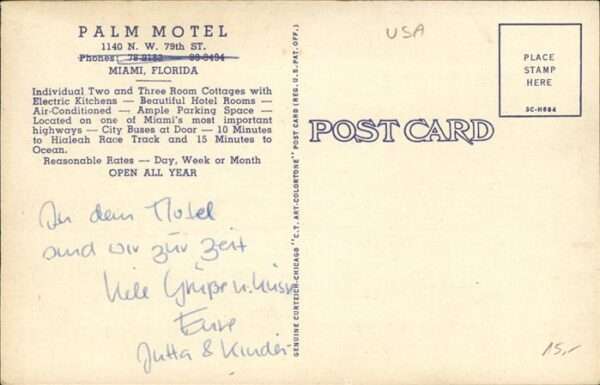 PALM MOTEL
1140 N. W. 79th ST.
Phones: 78-9182 89-9494
MIAMI, FLORIDA
Individual Two and Three Room Cottages with
Electric Kitchens — Beautiful Hotel Rooms —
Air-Conditioned — Ample Parking Space —
Located on one of Miami's most important
highways — City Buses at Door — 10 Minutes
to Hialeah Race Track and 15 Minutes to
Ocean.
Reasonable Rates — Day, Week or Month
OPEN ALL YEAR
In dem Motel
sind wir zur Zeit
Viele Grüße u. Küsse
Eure
Jutta & Kinder
GENUINE CURTEICH-CHICAGO "C.T. ART-COLORTONE" POST CARD (REG. U.S. PAT. OFF.)
USA
PLACE
STAMP
HERE
5C-H684
POST CARD
15,-